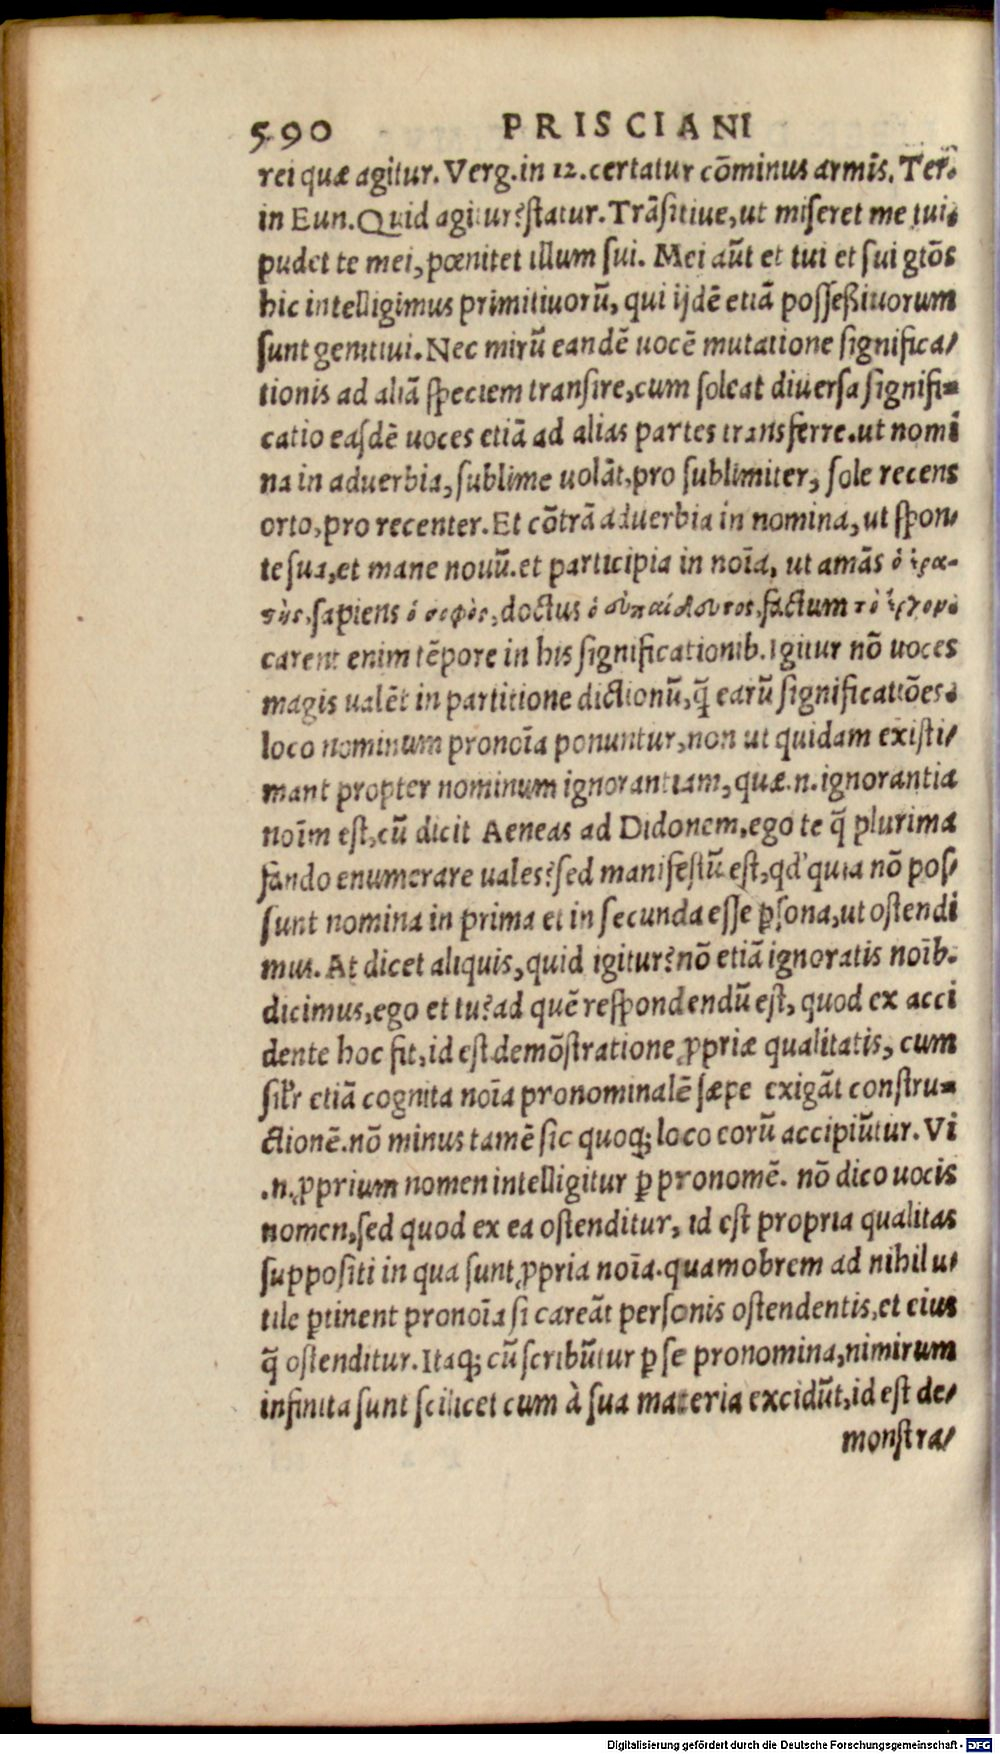 590 PRISCIANI
rei quæ agitur. Verg. in 12. certatur cõminus armis. Ter.
in Eun. Quid agitur? statur. Trãsitiue, ut miseret me tui,
pudet te mei, pœnitet illum sui. Mei aũt et tui et sui gtõs
hic intelligimus primitiuorũ, qui ijdẽ etiã possessiuorum
sunt genitiui. Nec mirũ eandẽ uocẽ mutatione significa/
tionis ad aliã speciem transire, cum soleat diuersa signifi=
catio easdẽ uoces etiã ad alias partes transferre. ut nomi
na in aduerbia, sublime uolãt, pro sublimiter, sole recens
orto, pro recenter. Et cõtrã aduerbia in nomina, ut spon/
te sua, et mane nouũ. et participia in noĩa, ut amãs ὁ ἐρα-
ϛὴς, sapiens ὁ σοφὸς, doctus ὁ factum τὸ ἔργον.
carent enim tẽpore in his significationib. Igitur nõ uoces
magis ualẽt in partitione dictionũ, q̃ earũ significatiões.
loco nominum pronoĩa ponuntur, non ut quidam existi/
mant propter nominum ignorantiam, quæ.n. ignorantia
noĩm est, cũ dicit Aeneas ad Didonem, ego te q̃ plurima
fando enumerare uales? sed manifestũ est, qd' quia nõ pos/
sunt nomina in prima et in secunda esse ꝑsona, ut ostendi
mus. At dicet aliquis, quid igitur? nõ etiã ignoratis noĩb.
dicimus, ego et tu? ad quẽ respondendũ est, quod ex acci
dente hoc fit, id est demõstratione ꝓpriæ qualitatis, cum
silr etiã cognita noĩa pronominalẽ sæpe exigãt constru=
ctionẽ. nõ minus tamẽ sic quoq; loco eorũ accipiũtur. Vi
.n. ꝓprium nomen intelligitur ꝑ pronomẽ. nõ dico uocis
nomen, sed quod ex ea ostenditur, id est propria qualitas
suppositi in qua sunt ꝓpria noĩa. quamobrem ad nihil u/
tile ꝑtinent pronoĩa si careãt personis ostendentis, et eius
q̃ ostenditur. Itaq; cũ scribũtur ꝑ se pronomina, nimirum
infinita sunt scilicet cum à sua materia excidũt, id est de/
monstra/
Digitalisierung gefördert durch die Deutsche Forschungsgemeinschaft - DFG